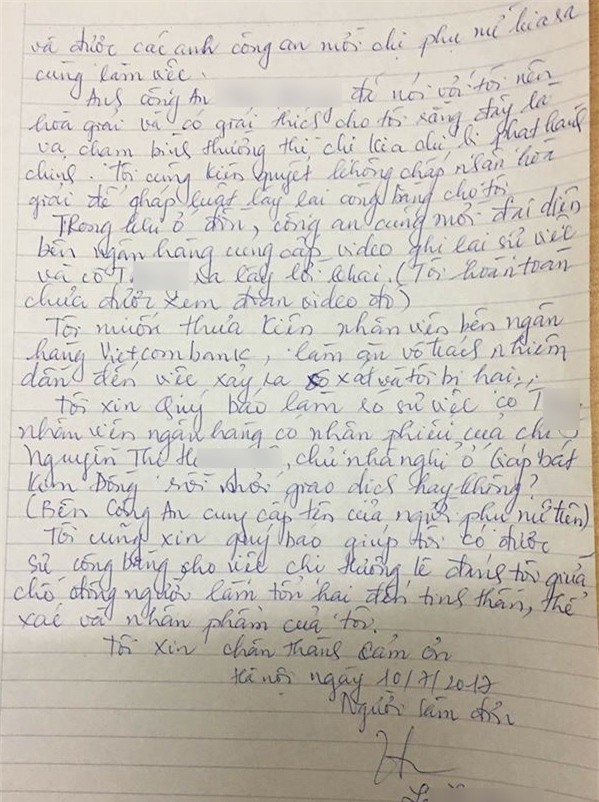 và được các anh công an mời chị phụ nữ kia ra
cùng làm việc.
Anh công An đã nói với tôi nên
hòa giải và có giải thích cho tôi rằng đây là
va chạm bình thường thì chị kia chỉ bị phạt hành
chính. Tôi cũng kiên quyết không chấp nhận hòa
giải để pháp luật lấy lại công bằng cho tôi
Trong lúc ở đồn, công an cũng mời đại diện
bên ngân hàng cung cấp video ghi lại sự việc
và cô T ra lấy lời khai. (Tôi hoàn toàn
chưa được xem đoạn video đó)
Tôi muốn thưa kiện nhân viên bên ngân
hàng Vietcombank, làm ăn vô trách nhiệm
dẫn đến việc xảy ra xô xát và tôi bị hại.
Tôi xin Quý báo làm rõ sự việc cô T
nhân viên ngân hàng có nhận phiếu của chị
Nguyễn Thị H , chủ nhà nghỉ ở Giáp bát
Kim Đồng rồi mới giao dịch hay không?
(Bên Công An cung cấp tên của người phụ nữ trên)
Tôi cũng xin quý báo giúp tôi có được
sự công bằng cho việc chị Hường lê đánh tôi giữa
chỗ đông người làm tổn hại đến tinh thần, thể
xác và nhân phẩm của tôi.
Tôi xin chân thành cảm ơn
Hà nội ngày 10/7/2017
Người làm đơn